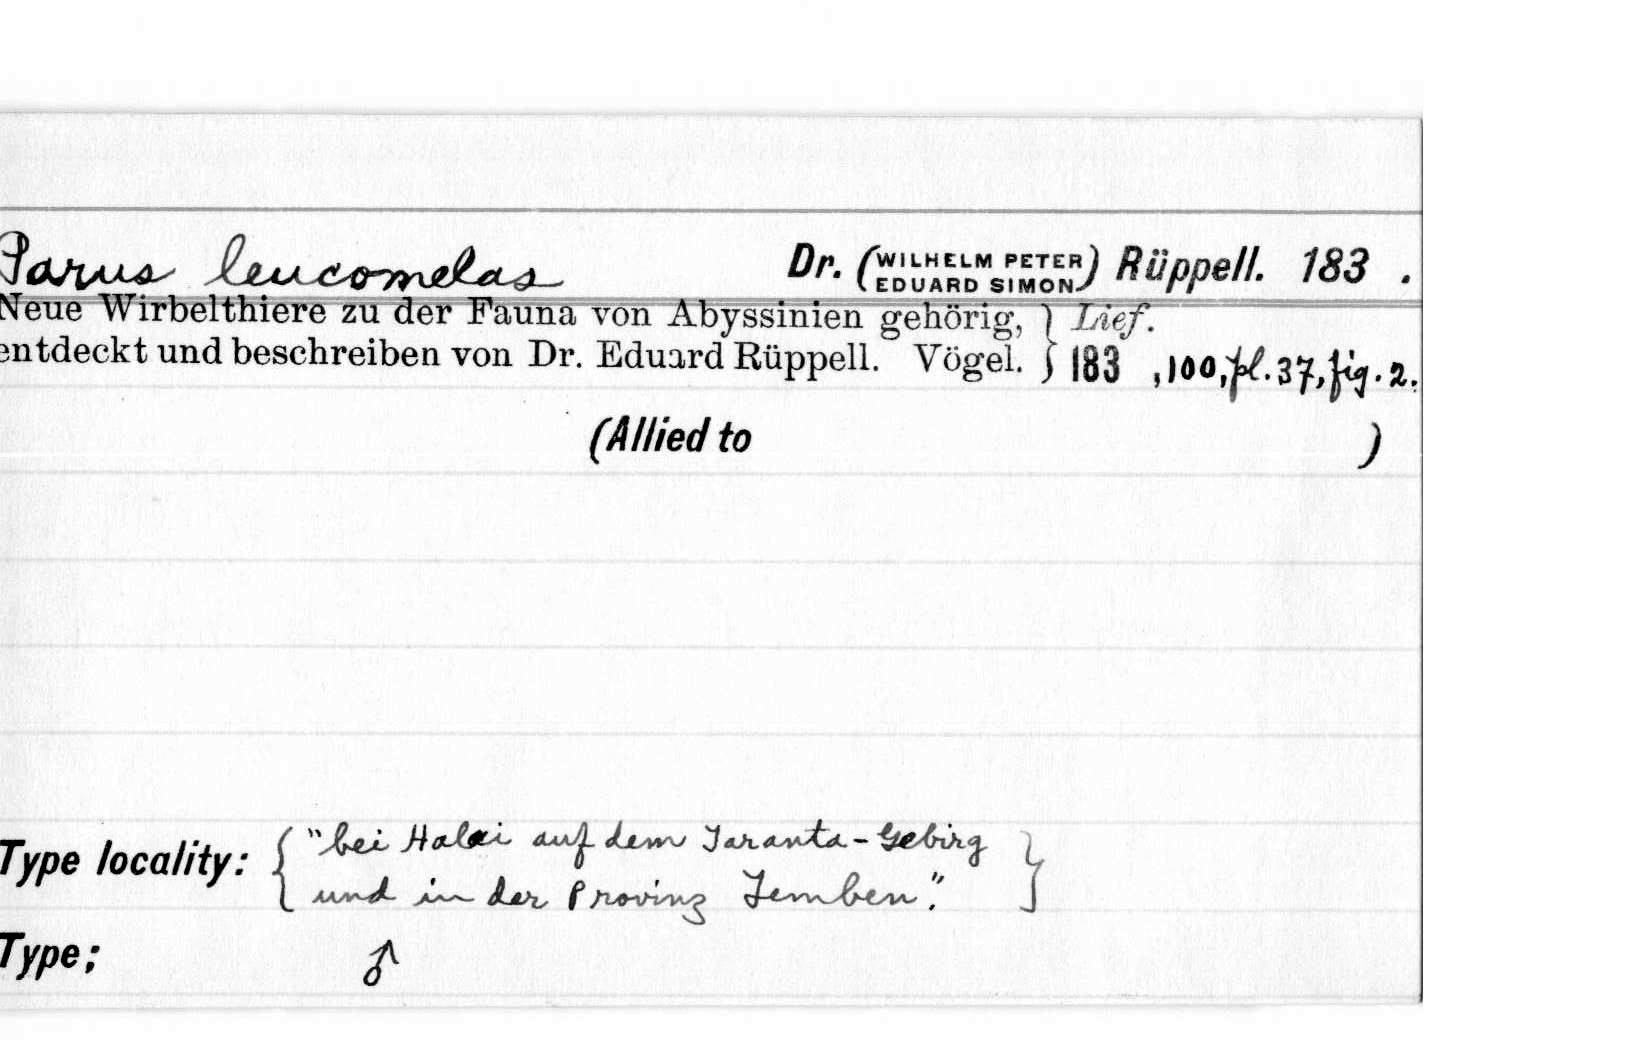 Parus leucomelas Dr. (WILHELM PETER EDUARD SIMON) Rüppell. 183 .
Neue Wirbelthiere zu der Fauna von Abyssinien gehörig, } Lief.
entdeckt und beschreiben von Dr. Eduard Rüppell. Vögel. } 183 ,100,pl.37,fig.2.
(Allied to )
Type locality: { "bei Halai auf dem Taranta-Gebirg
und in der Provinz Temben." }
Type; ♂